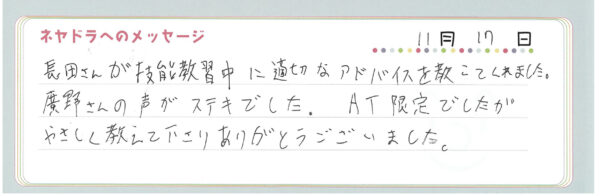 ネヤドラへのメッセージ
11月 17日
長田さんが技能教習中に適切なアドバイスを教こてくれました。
廣野さんの声がステキでした. AT限定でしたが
やさしく教えて下さりありがとうございました。